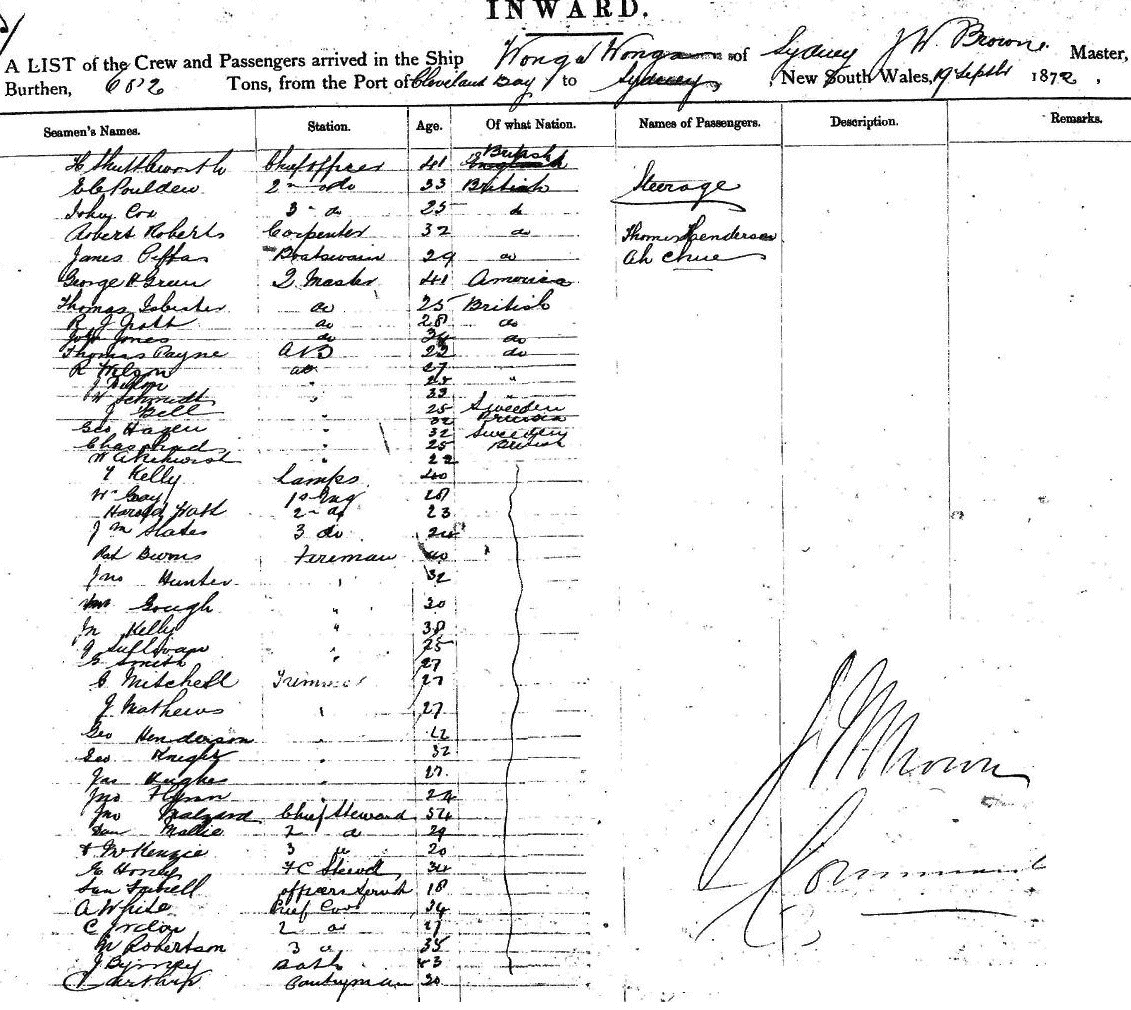 INWARD.
A LIST of the Crew and Passengers arrived in the Ship Wonga Wonga of Sydney J W Brown Master,
Burthen, 682 Tons, from the Port of Cleveland Bay to Sydney, New South Wales, 19 Septbr 1872,
Seamen's Names. Station. Age. Of what Nation. Names of Passengers. Description. Remarks.
H Shuttleworth Chief officer 41 British
E C Poulden 2nd do 33 British Steerage
John Cox 3rd do 25 do
Robert Roberts Carpenter 32 do Thomas Henderson
James Boatswain 29 do Ah Chue
George H Green Q Master 41 America
Thomas Isbester do 25 British
R J do 28 do
John Jones do do
Thomas Payne AB 23 do
R Wilson do 27
J
W Schmidt 33
J Bell 25 Sweden
Geo Hagen 32 Sweden
Chas 25
W 22
T Kelly Lamps 40
Wm Gray 1st Eng
Harold 2nd do 23
J M Slates 3 do 24
Pat Fireman 40
Jno Hunter 32
Gough 30
Jn Kelly 38
J Sullivan 25
G Smith 27
G Mitchell Trimmer 27
J Mathews 27
Geo Henderson
Geo Knight 32
Jas Hughes 27
Jno Flynn 24
Jno Chief Steward 54
Dan Mallie 2 do 29
McKenzie 3 do 20
G Honey F C Stewd 34
Sam officers Servt 18
A White Chief Cook 34
C 2 do 27
W Robertson 3 do 35
J Byrnes
Pantryman 30
J W Brown
Command